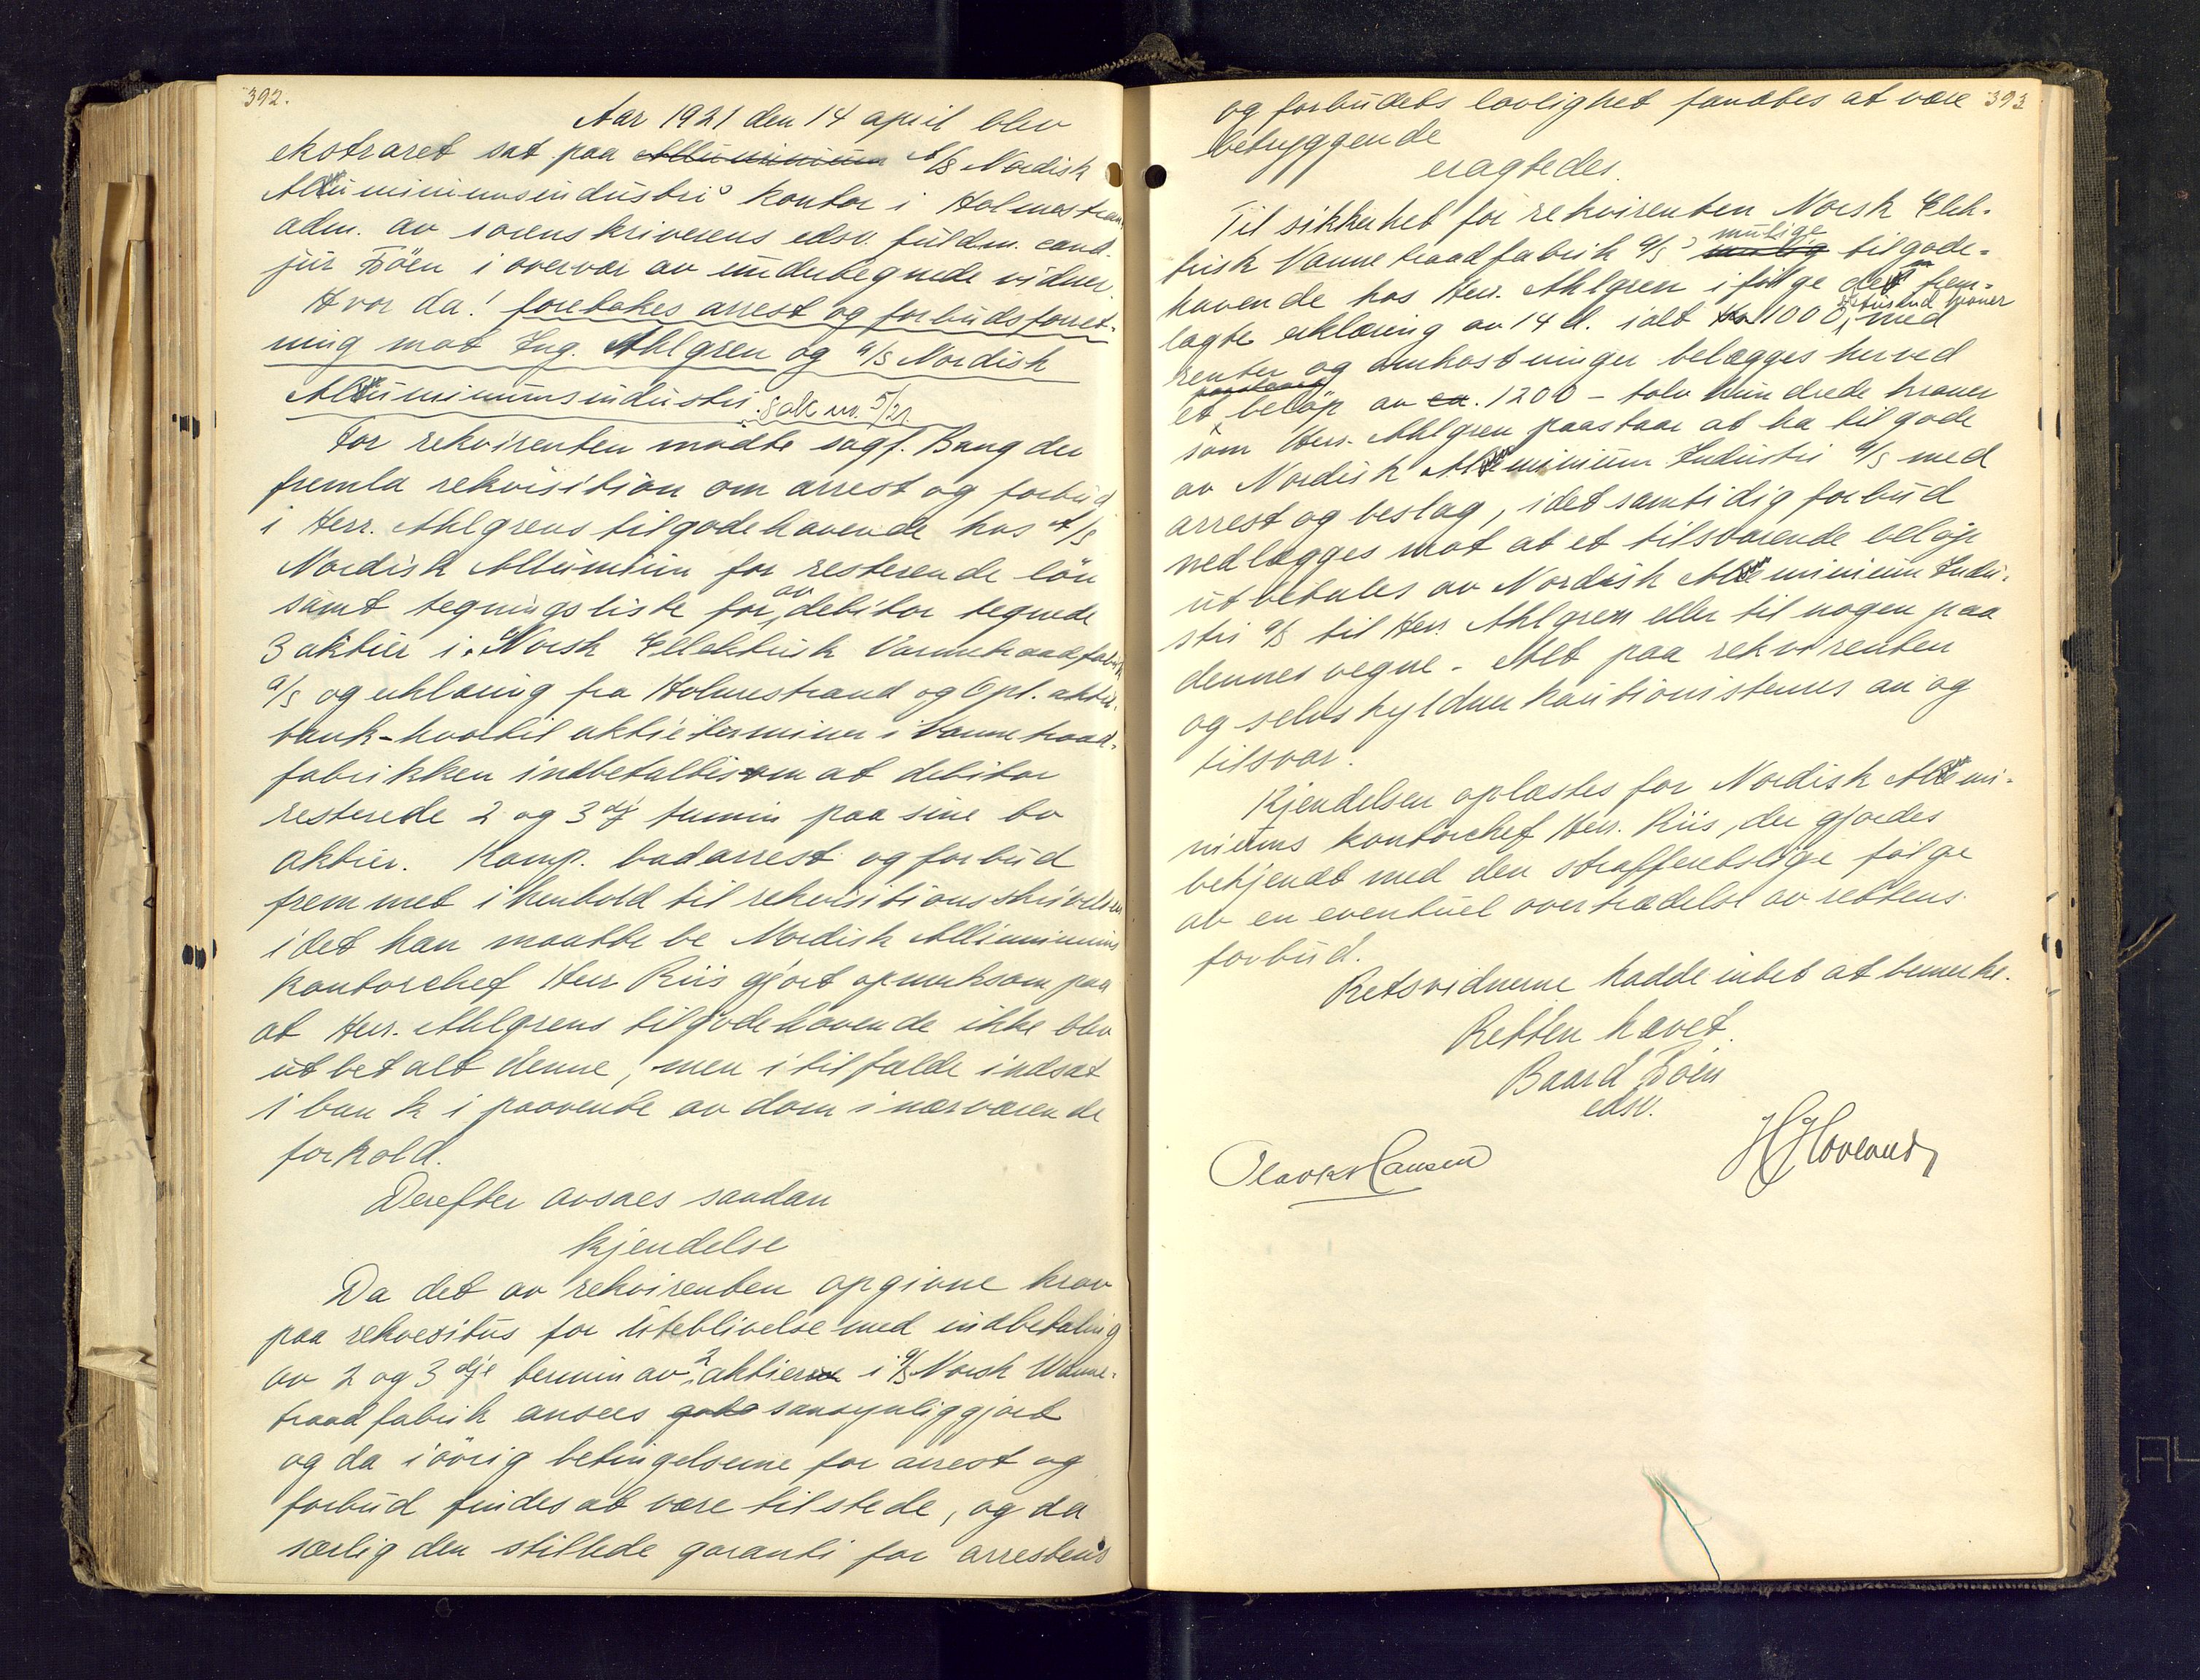 392.
Aar 1921 den 14 april blev
ekstraret sat paa Alluminium A/S Nordisk
Aluminiumsindustri's kontor i Holmestrand
adm. av sorenskriverens edsv. fuldm. cand.
jur Böen i overvær av undertegnede vidner.
Hvor da! foretokes arrest og forbudsforret-
ning mot Ing. Ahlgren og A/S Nordisk
Aluminiumsindustri. Sak nr. 5/21.
For rekvirenten mødte sagf. Bang der
fremla rekvisition om arrest og forbud
i Herr. Ahlgrens tilgodehavende hos A/S
Nordisk Aluminium for resterende løn
samt tegningsliste for, av debitor tegnede
3 aktier i Norsk Ellektrisk Varmetraadfabrik
A/S og erklæring fra Holmestrand og Opl. aktie-
bank - hvortil aktieterminer i Varmetraad-
fabrikken indbetaltes om at debitor
resterede 2 og 3 dj termin paa sine to
aktier. Komp. bad arrest og forbud
fremmet i henhold til rekvisitionsskrivelsen
idet han maatte be Nordisk Alluminiums
kontorchef Herr Riis gjort opmerksom paa
at Herr. Ahlgrens tilgodehavende ikke blev
utbetalt denne, men i tilfælde indsat
i bank i paavente av dom i nærværende
forhold.
Derefter avsaes saadan
kjendelse
Da det av rekvirenten opgivne krav
paa rekvesitus for Uteblivelse med indbetaling
av 2 og 3 dje termin av 2 aktier i A/S Norsk Varme-
traadfabrik ansees godt sansynliggjort
og da iøvrig betingelserne for arrest og
forbud findes at være tilstede, og da
særlig den stillede garanti for arrestens
393
og forbudets lovlighet fandtes at være
betryggende
eragtedes.
Til sikkerhet for rekvirenten Norsk Elek-
trisk Varmetraadfabrik A/S' mulig mulige tilgode-
havende hos Herr. Ahlgren ifølge det frem-
lagte erklæring av 14 d. ialt Kr. 1000, ettusend kroner med
renter og omkostninger belægges herved
et beløp av ca. 1200 - tolv hundrede kroner
som Herr. Ahlgren paastaar at ha tilgode
av Nordisk Aluminium Industri A/S med
arrest og beslag, idet samtidig forbud
nedlægges mot at et tilsvarende beløp
utbetales av Nordisk Aluminium Indu-
stri A/S til Herr. Ahlgren eller til nogen paa
dennes vegne. - Alt paa rekvirenten
og selvskyldnerkautionisternes an og
tilsvar.
Kjendelsen oplæstes for Nordisk Alumi-
niums kontorchef Herr. Riis, der gjordes
bekjendt med den strafferetslige følge
av en eventuel overtrædelse av rettens
forbud.
Retsvidnerne hadde intet at bemerke.
Retten hævet.
Baard Böen
edsv.
Olav Kr Hansen
H Hovland